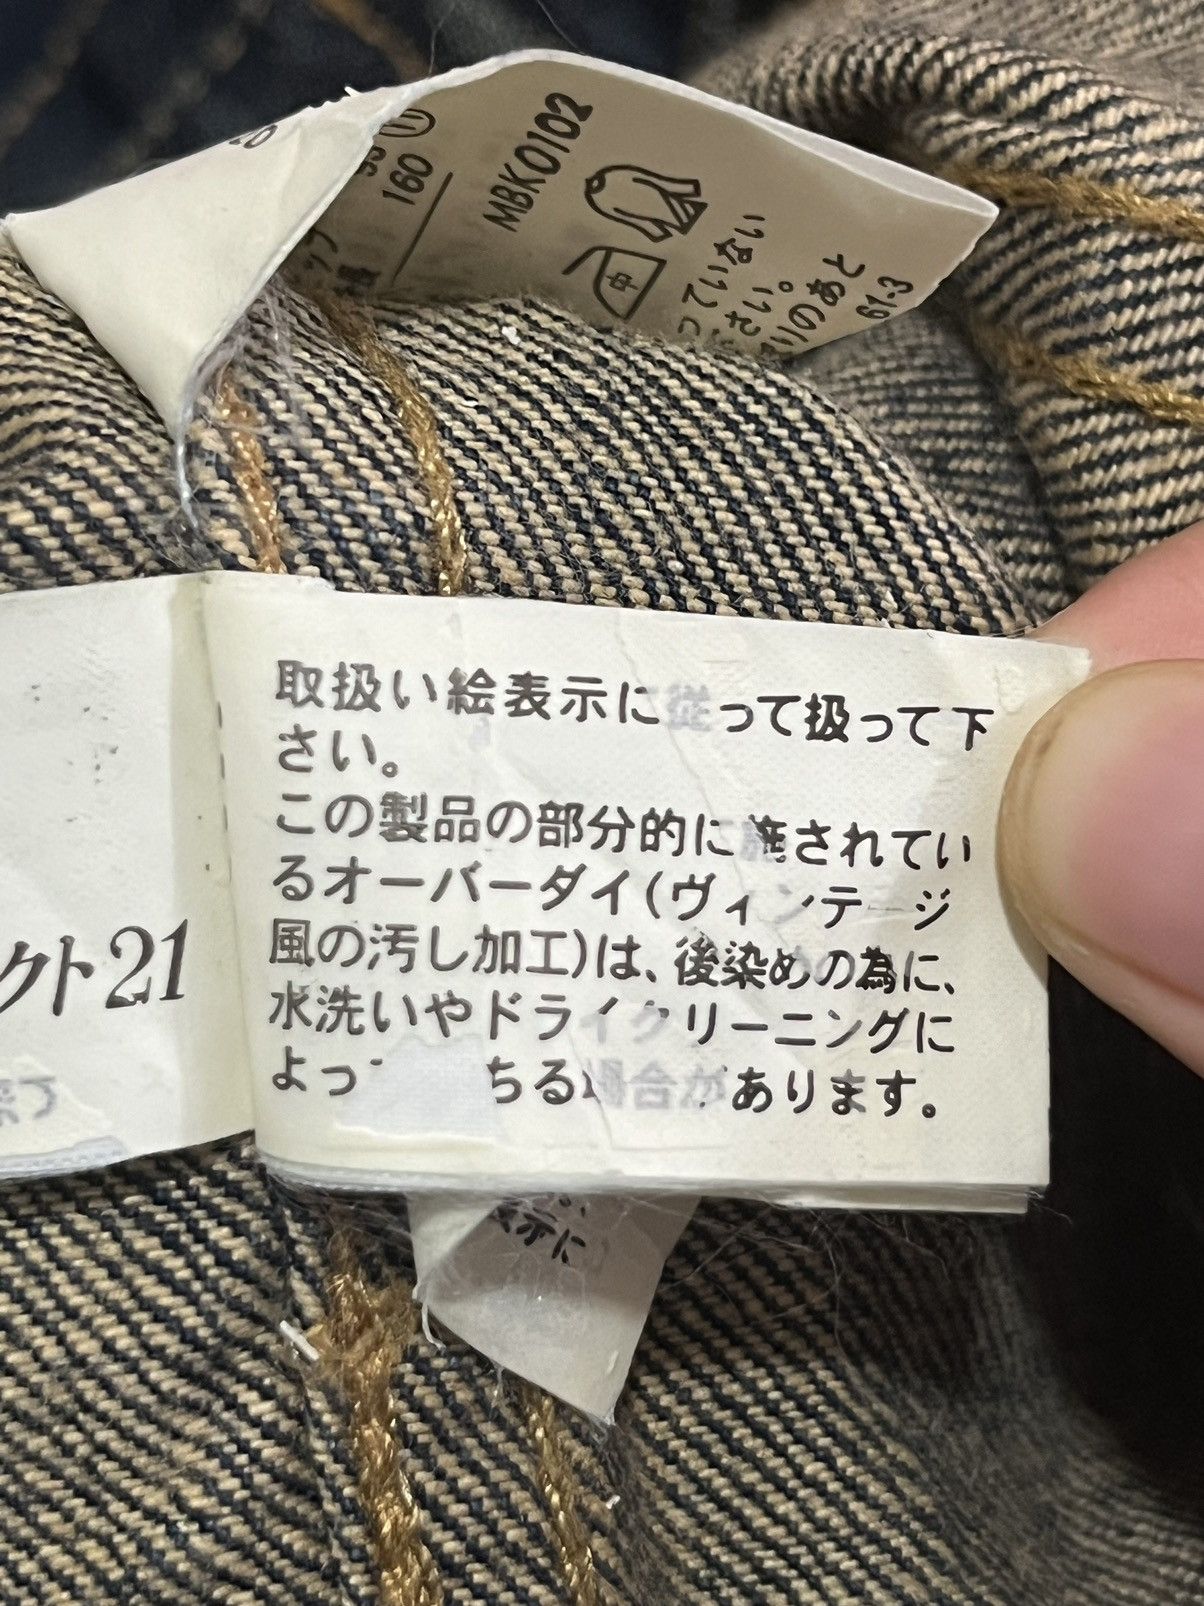 160
MBK0102
中
っていない
さい。
りのあと
61-3
クト21
取扱い絵表示に従って扱って下
さい。
この製品の部分的に施されてい
るオーバーダイ(ヴィンテージ
風の汚し加工)は、後染めの為に、
水洗いやドライクリーニングに
よっ ちる場合があります。
示に